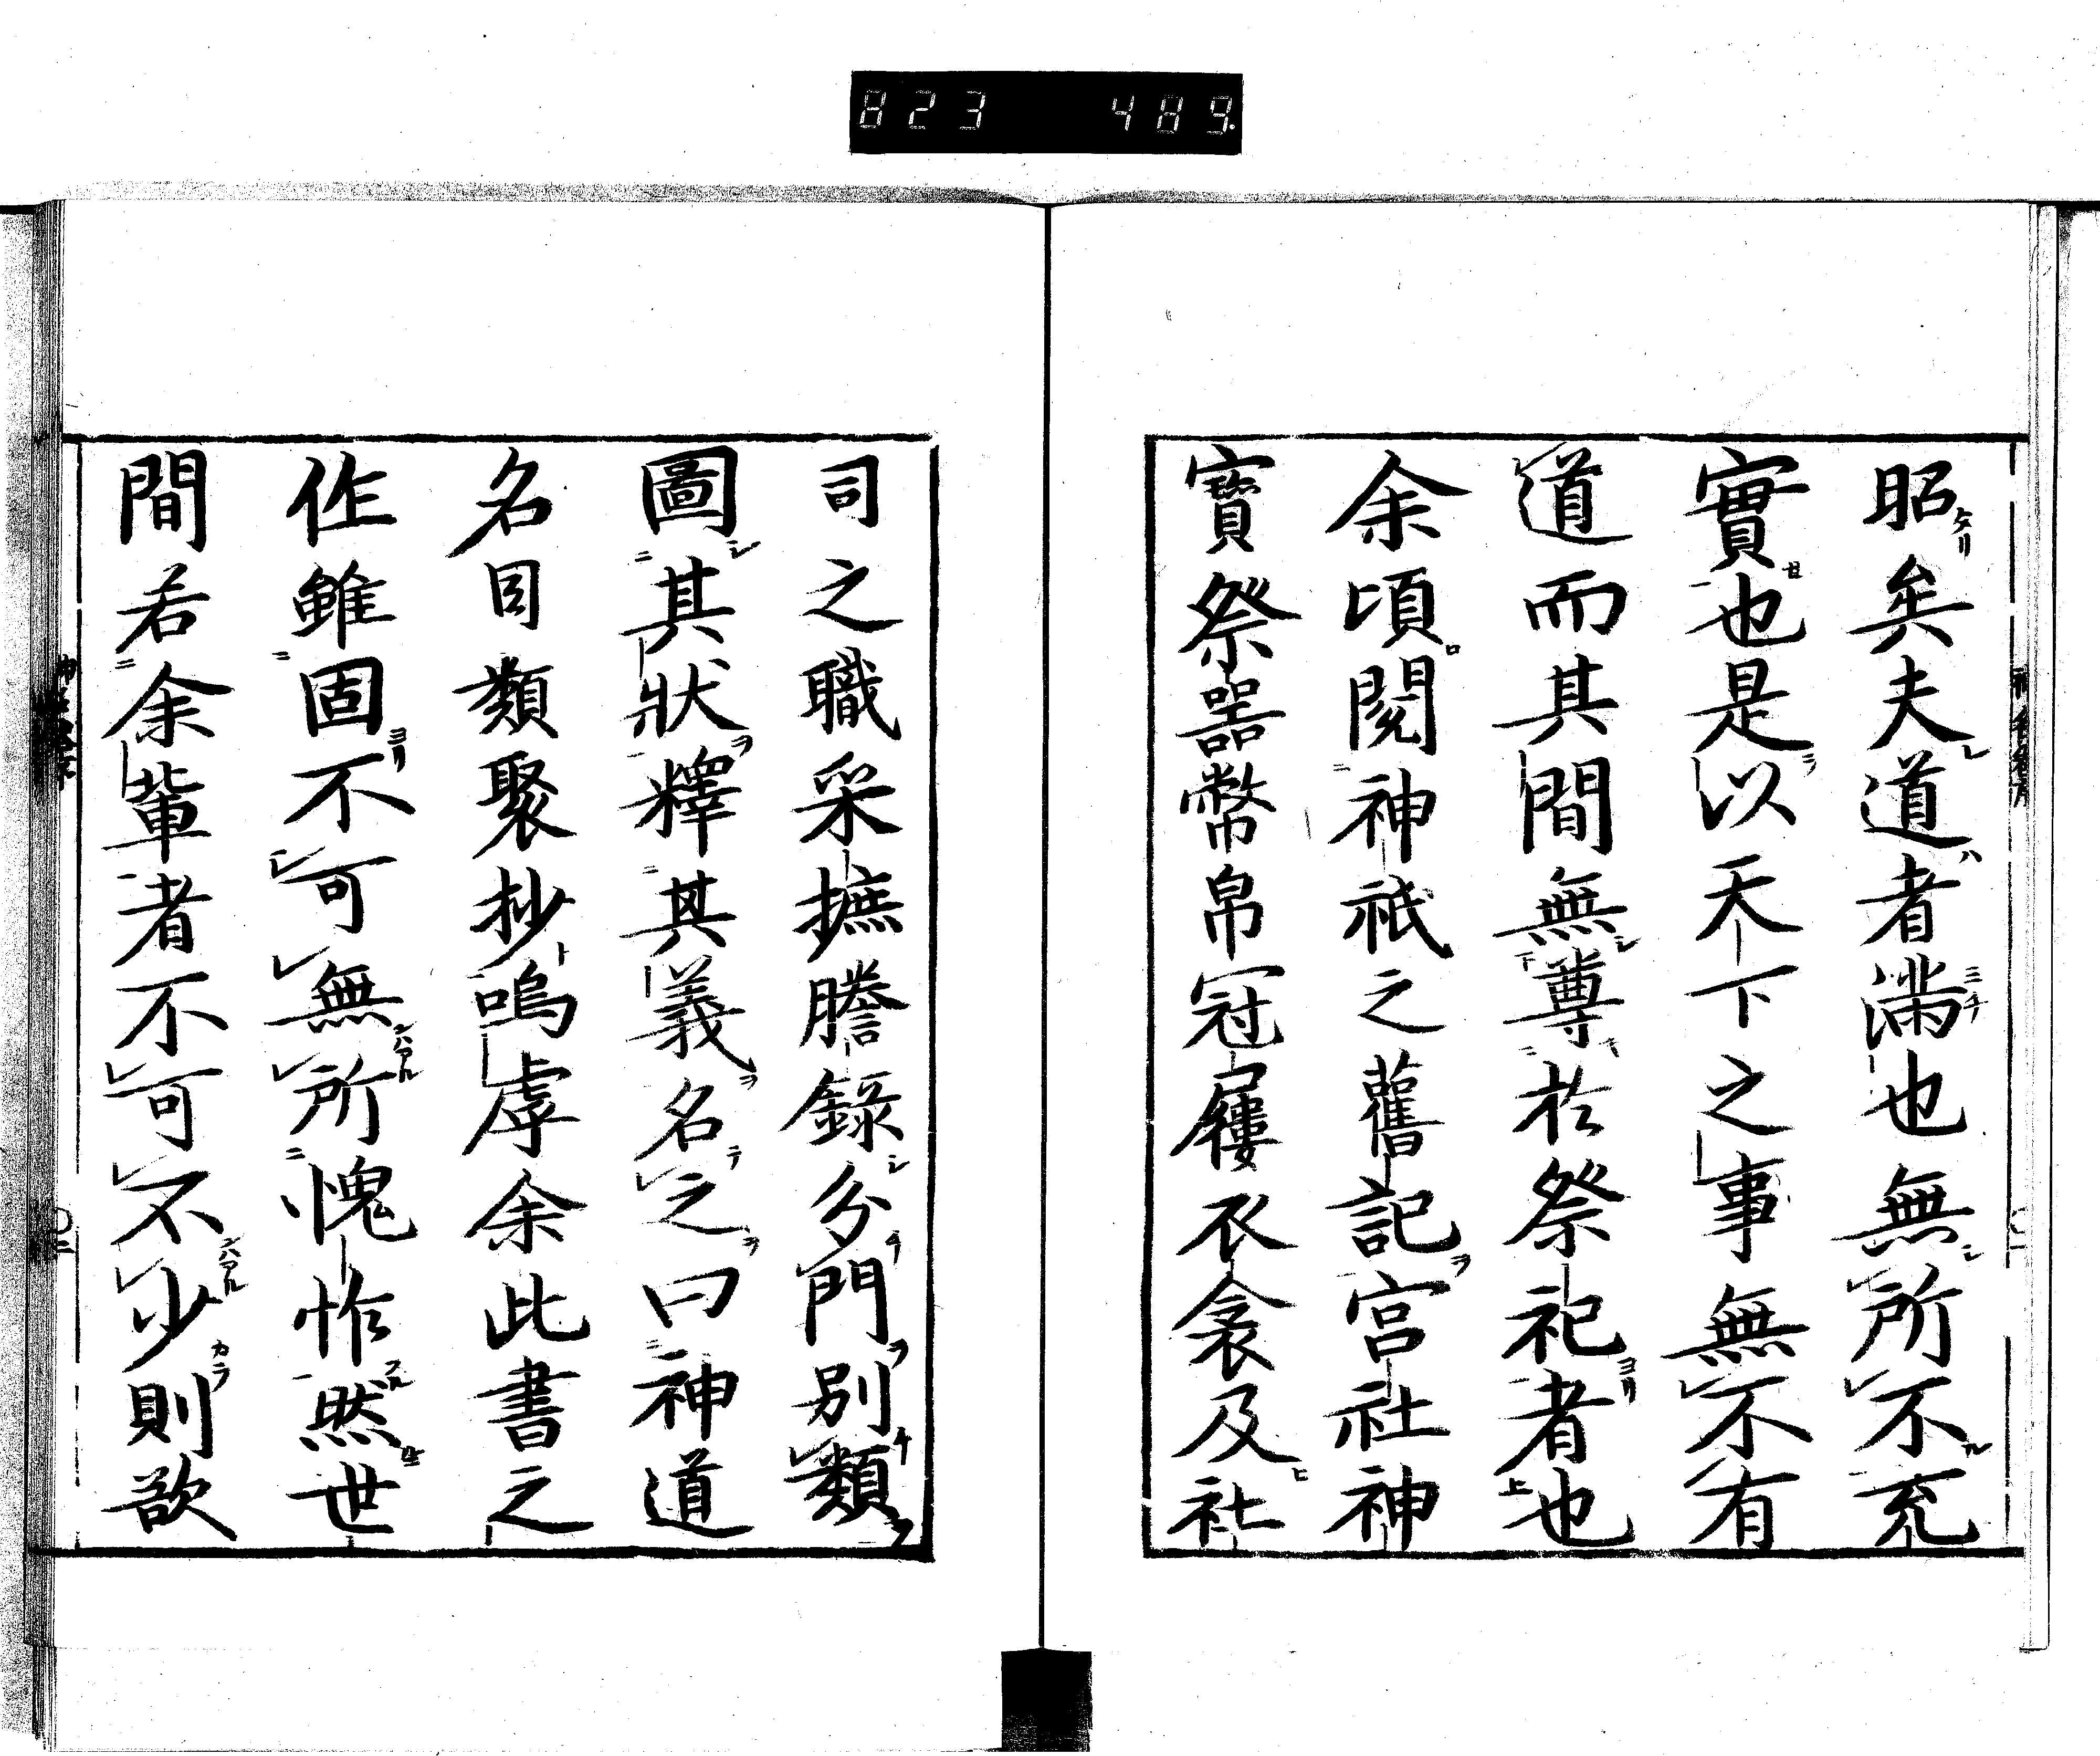 823 489.
昭矣夫道者滿也無所不充
實也是以天下之事無不有
道而其間無尊於祭祀者也
余頃閱神祇之舊記宮社神
寶祭噐幣帛冠屨衣衾及社
司之職采摭謄錄分門別類
圖其狀釋其義名之曰神道
名目類聚抄嗚虖余此書之
作雖固不可無所愧怍然世
間若余輩者不可不少則欲